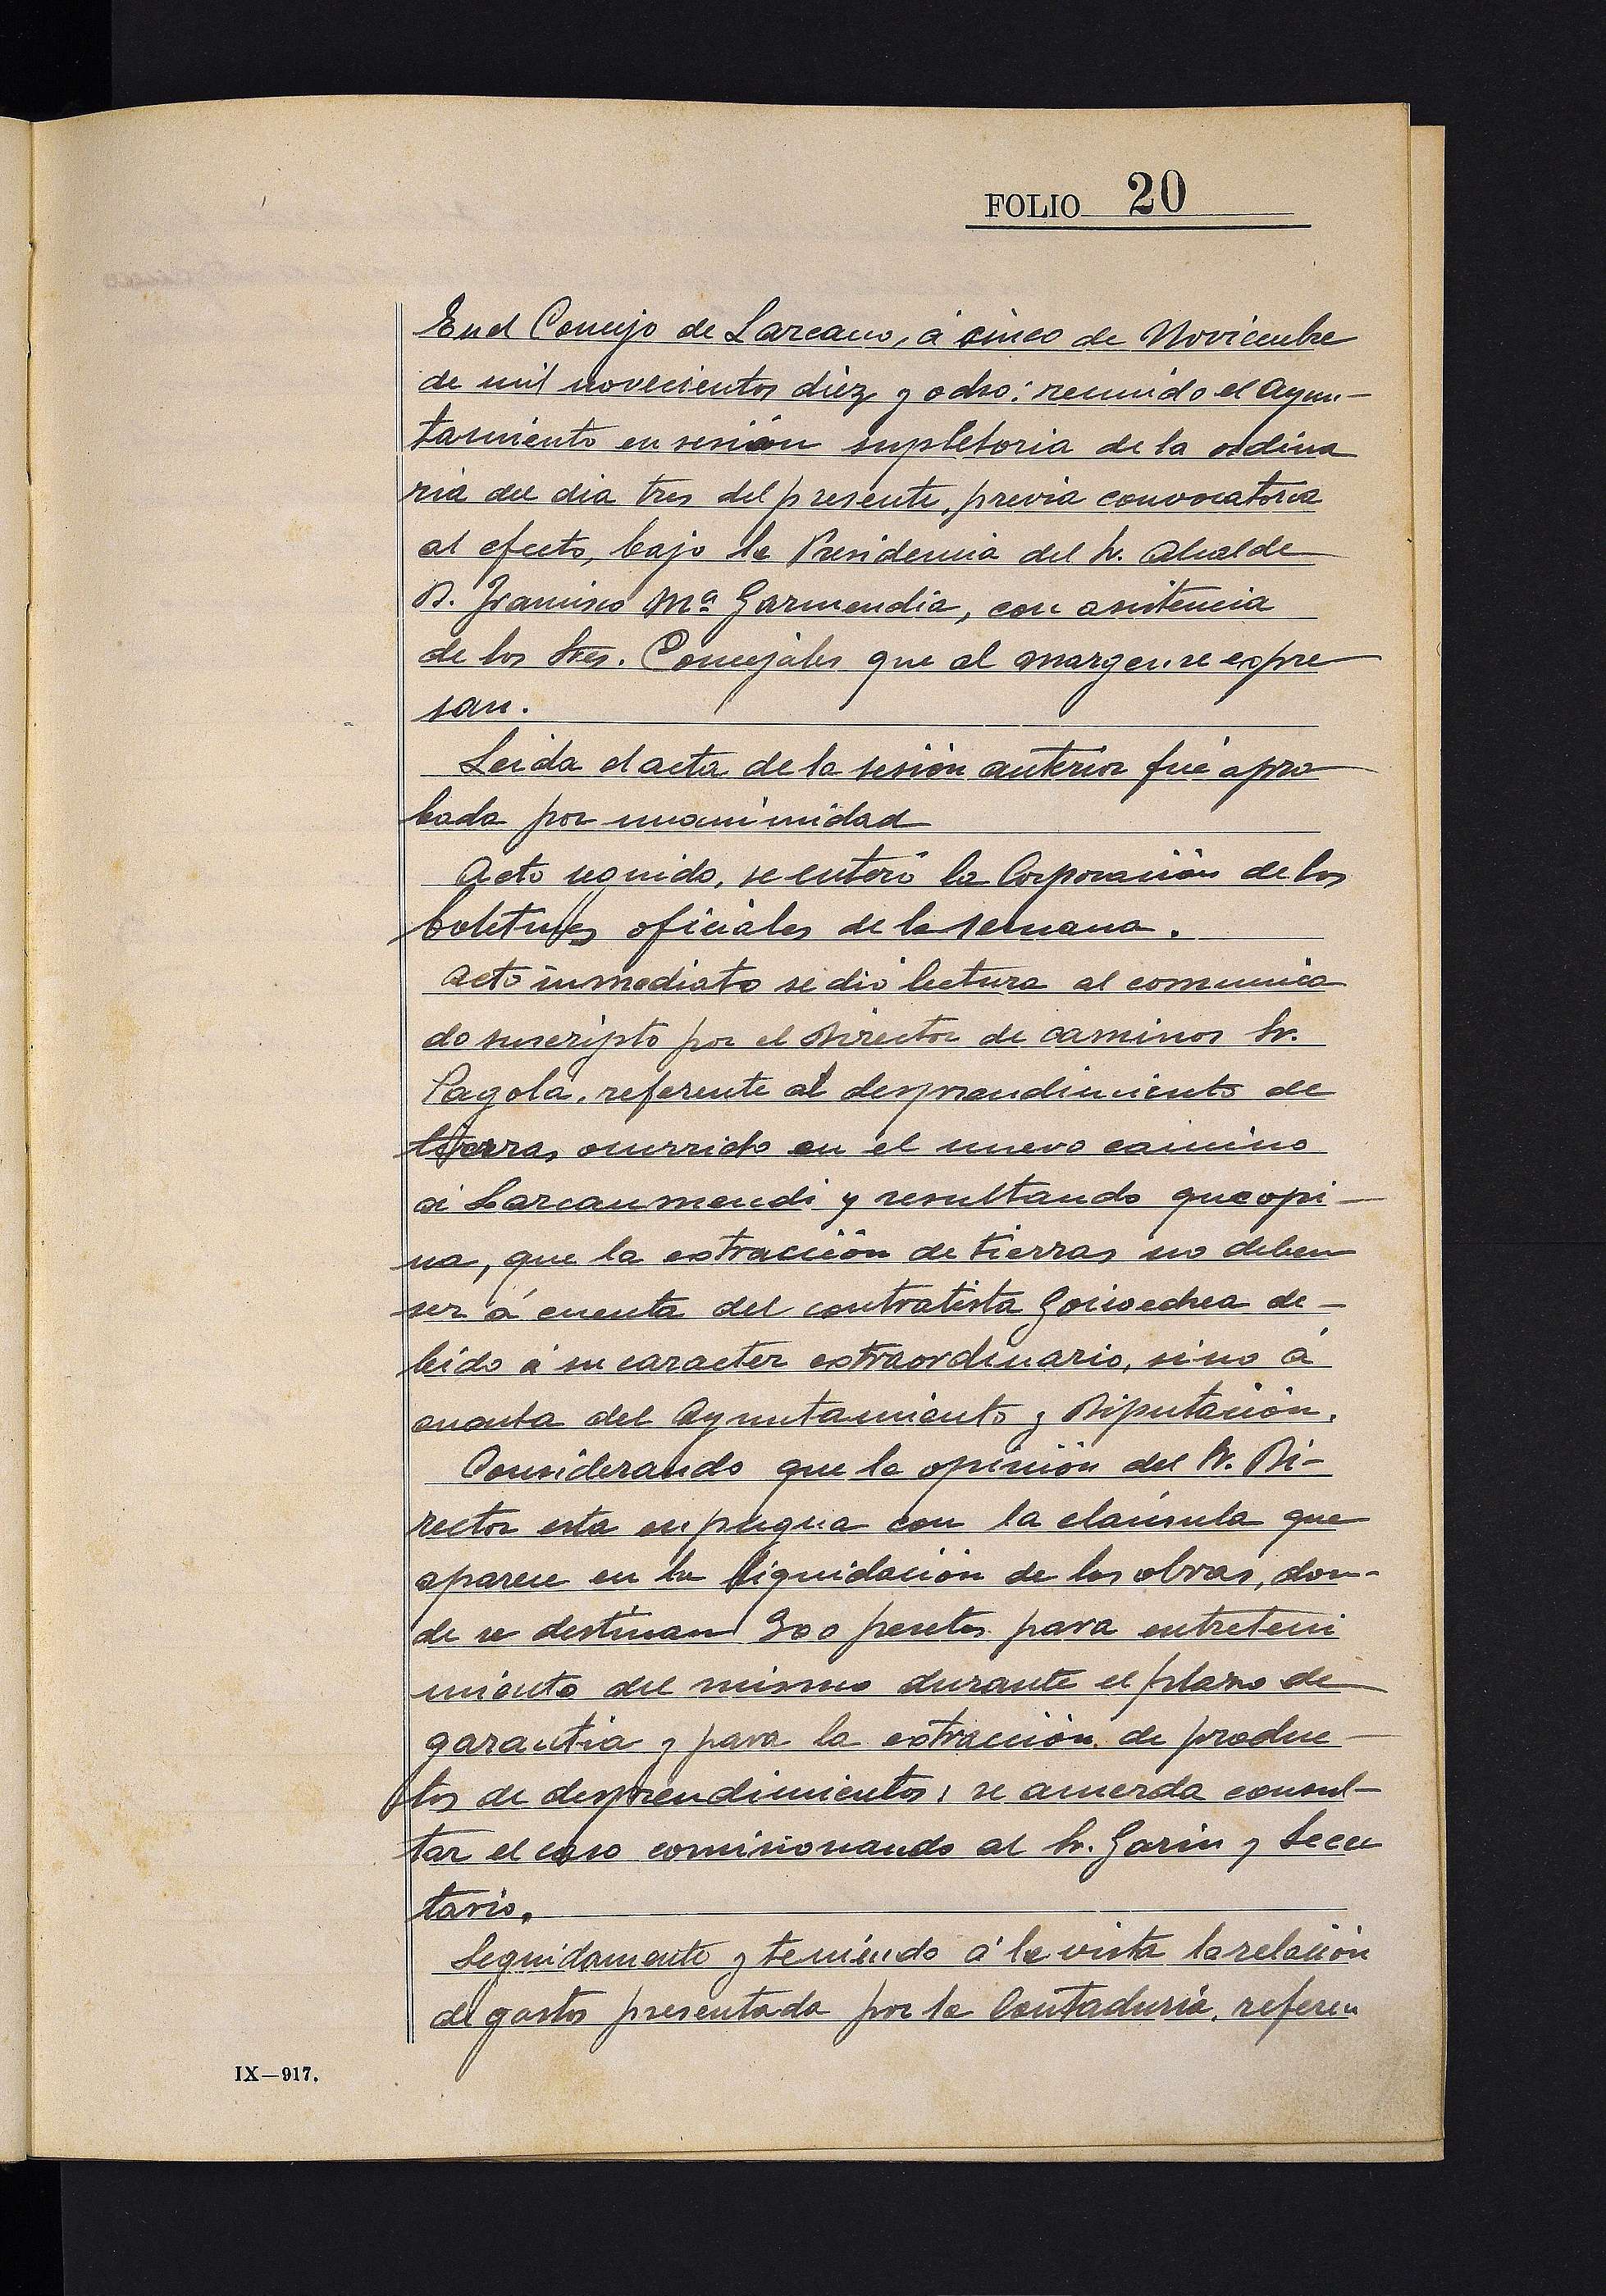 FOLIO 20
En el Concejo de Lazcano, á cinco de Noviembre
de mil novecientos diez y ocho: reunido el Ayun-
tamiento en sesión supletoria de la ordina
ria del dia tres del presente, previa convocatoria
al efecto, bajo la Presidencia del Sr. Alcalde
D. Francisco Mª Garmendia, con asistencia
de los Sres. Concejales que al margen se expre
san.
Leida el acta de la sesión anterior fué apro
bada por unanimidad
Acto seguido, se enteró la Corporación de los
boletines oficiales de la semana.
Acto inmediato se dió lectura al comunica
do suscripto por el Director de caminos Sr.
Pagola, referente al desprendimiento de
tierras ocurrido en el nuevo camino
á Lazcaumendi y resultando que opi-
na, que la extracción de tierras no deben
ser á cuenta del contratista Goicoechea de-
bido á su caracter extraordinario, sino á
cuenta del Ayuntamiento y Diputación.
Considerando que la opinión del Sr. Di-
rector esta en pugna con la claúsula que
aparece en la liquidación de las obras, don-
de se destinan 300 pesetas para entreteni
miento del mismo durante el plazo de
garantia y para la extracción de produc-
tos de desprendimientos: se acuerda consul-
tar el caso comisionando al Sr. Garin y Secre
tario.
Seguidamente y teniendo á la vista la relación
de gastos presentada por la Contaduría, referen
IX—917.